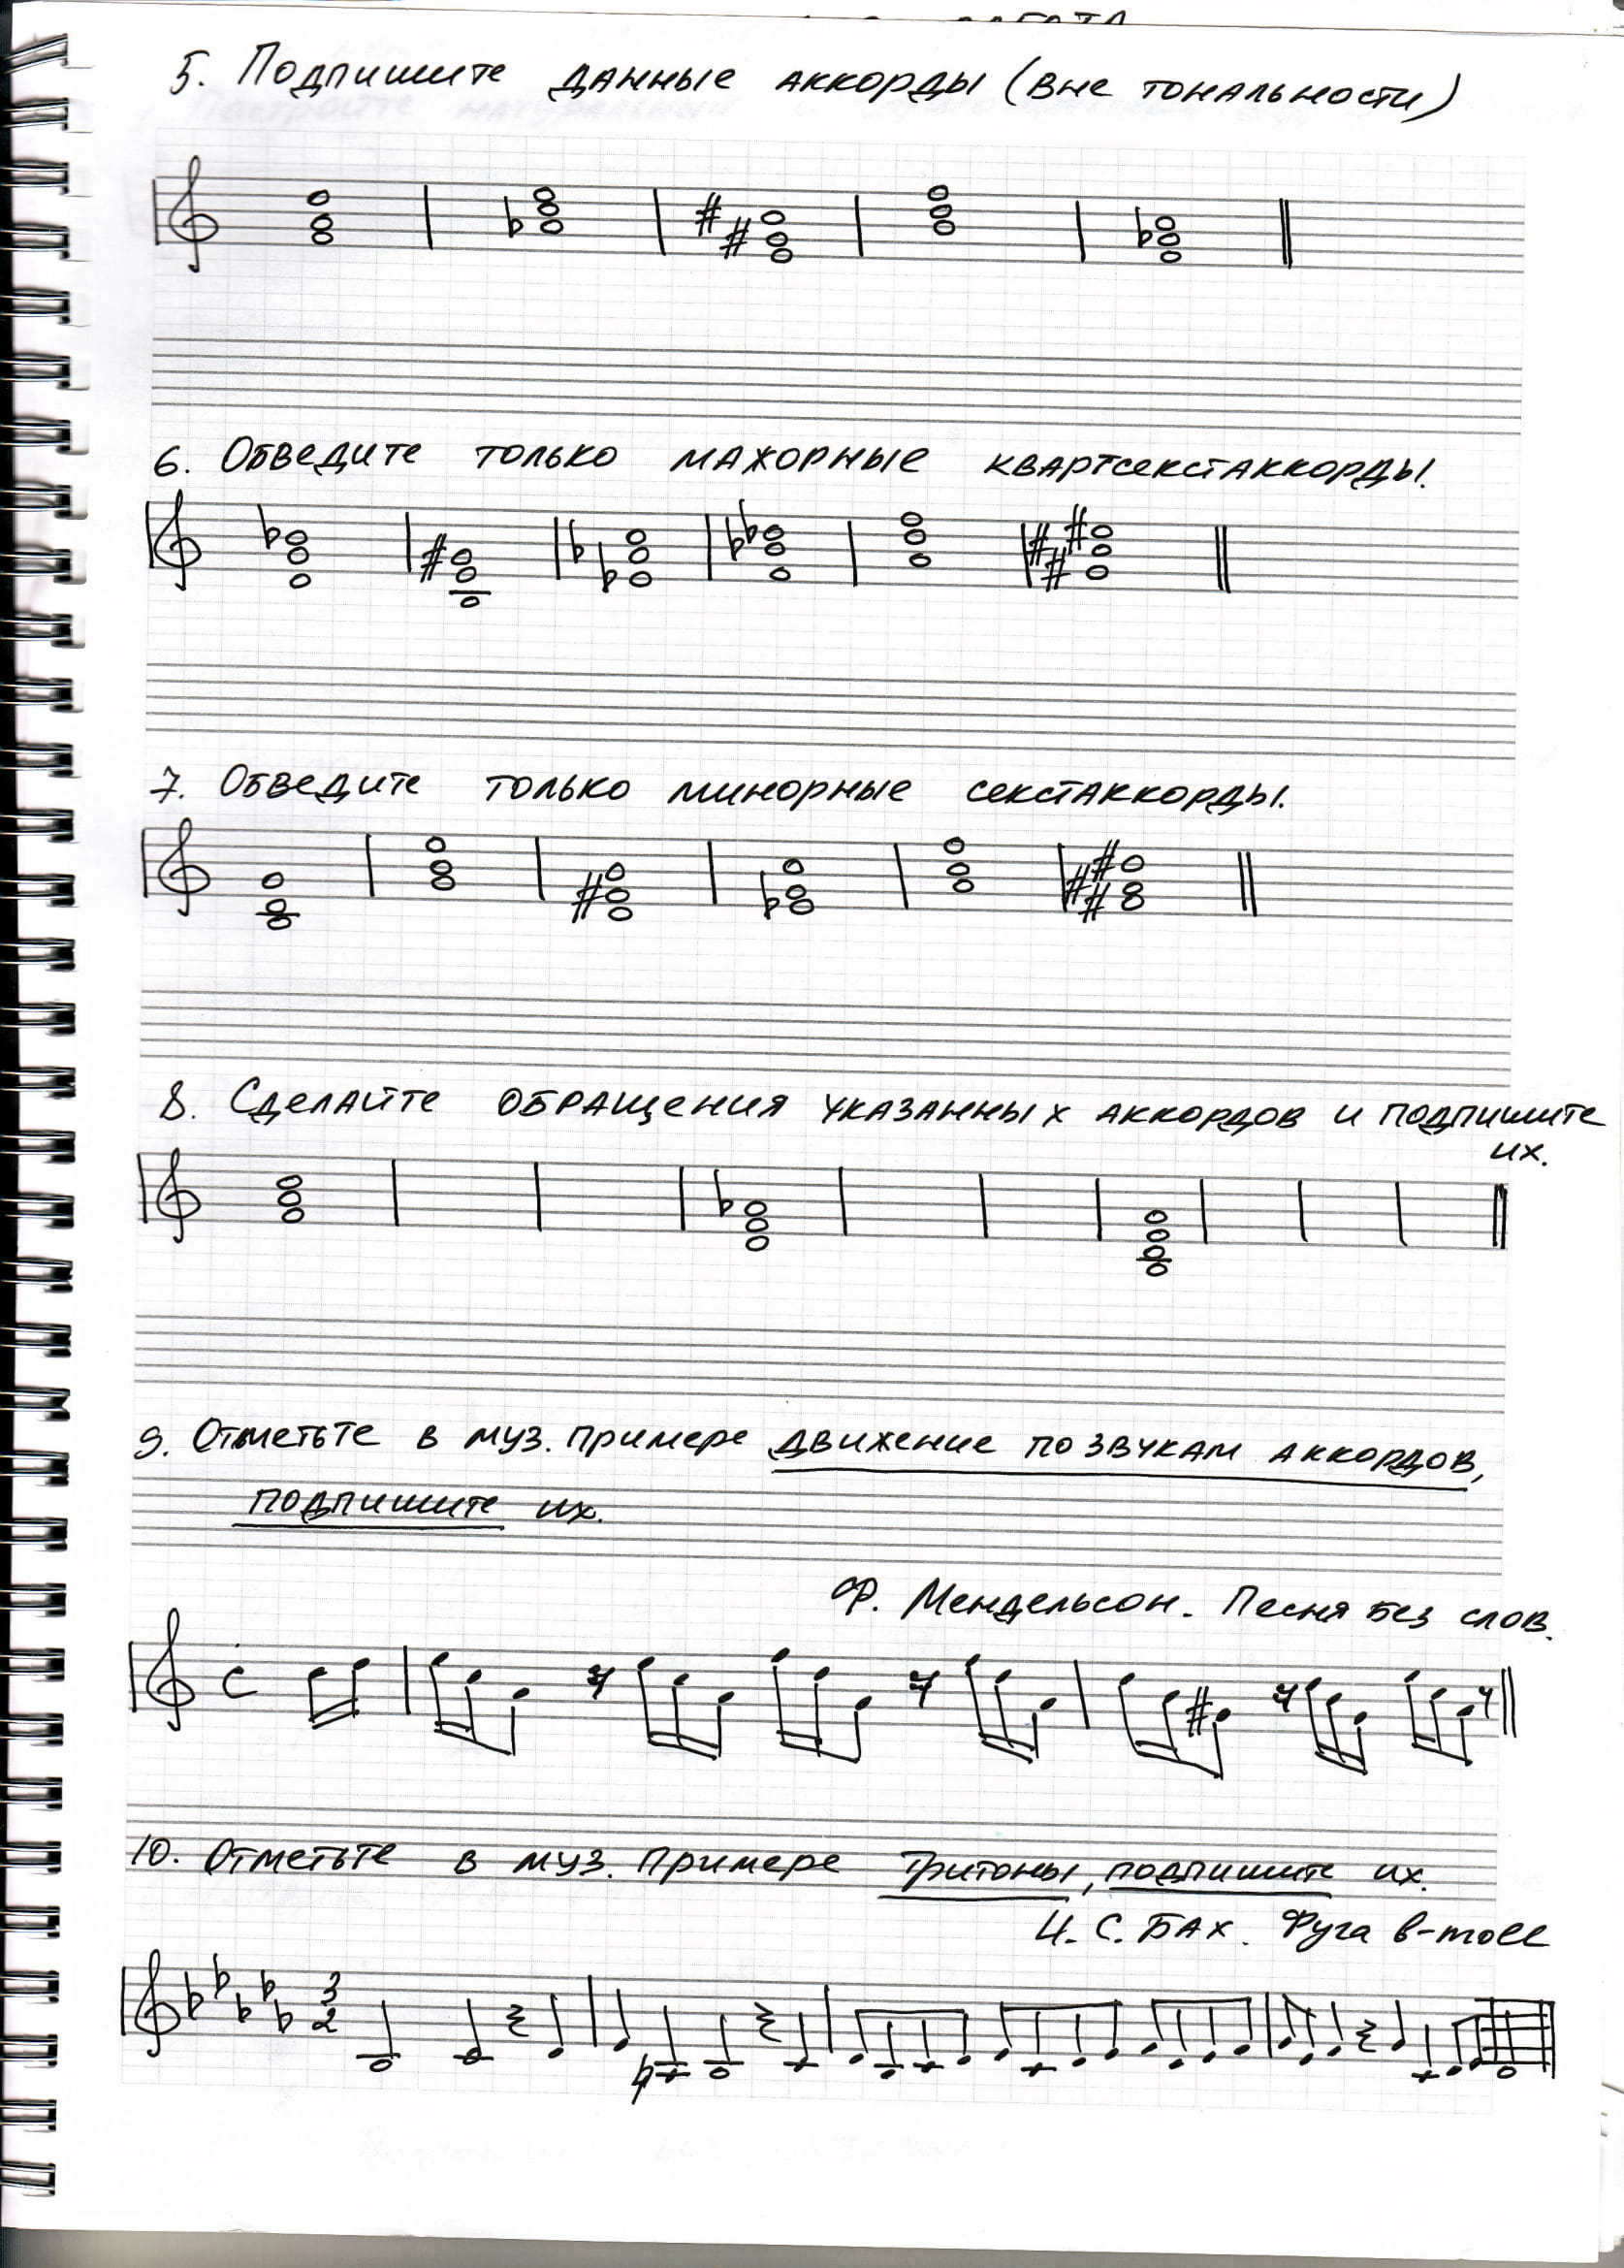 5. Подпишите данные аккорды (вне тональности)
6. Обведите только мажорные квартсекстаккорды.
7. Обведите только минорные секстаккорды.
8. Сделайте обращения указанных аккордов и подпишите
их.
9. Отметьте в муз. примере движение по звукам аккордов,
подпишите их.
Ф. Мендельсон. Песня без слов.
C
10. Отметьте в муз. примере тритоны, подпишите их.
И. С. Бах. Фуга b-moll
3
2